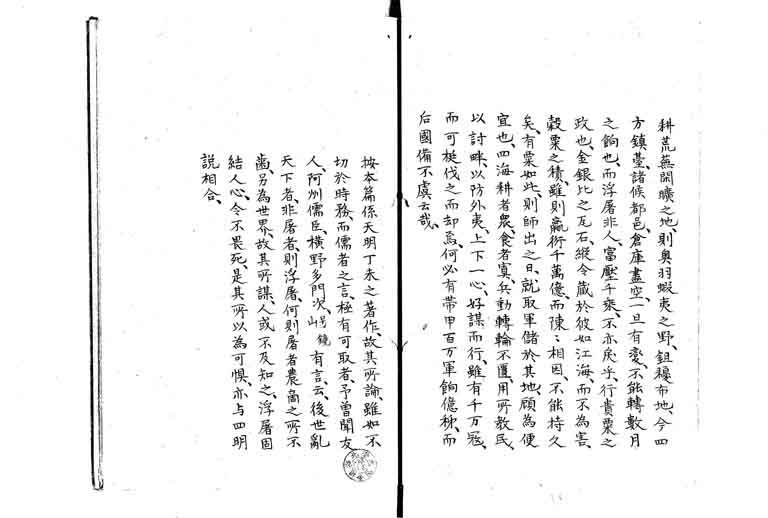 耕荒蕪開曠之地、則奥羽蝦夷之野、鉏耰布地、今四
方鎮臺、諸侯都邑、倉庫盡空、一旦有変、不能轉數月
之餉也、而浮屠非人、富壓千乘、不亦戾乎、行貴粟之
政也、金銀比之瓦石、縱令藏於彼如江海、而不為害、
穀粟之積、雖則贏衍千萬億、而陳〻相因、不能持久
矣、有粟如此、則師出之日、就取軍儲於其地、顧為便
宜也、四海耕者衆、食者寡、兵動轉輪不匱、用所教民、
以討畔、以防外夷、上下一心、好謀而行、雖有千万寇、
而可梃伐之而却焉、何必有帶甲百万軍餉億秭、而
后國備不虞云哉、
按本篇係天明丁未之著作、故其所論、雖如不
切於時務、而儒者之言、極有可取者、予曽聞友
人、阿州儒臣、横野多門次、号鏡山 有言、云、後世亂
天下者、非屠者、則浮屠、何則屠者農商之所不
齒、另為世界、故其所謀、人或不及知之、浮屠固
結人心、令不畏死、是其所以為可惧、亦与四明
說相合、